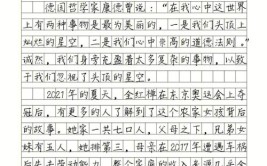 德国哲学家康德曾说："在我心中这世界
上有两种事物是最为美丽的，一是我们头顶上
灿烂的星空，二是我们心中崇高的道德法则。"
诚然，我们身旁充盈着太多复杂的事物，以致
于我们忽视了头顶的星空。
2021年的夏天，金红婵在东京奥运会上夺
冠后，有更多的人了解到了这个农家女孩背后
的故事，她家一共七口人，父母之下，兄弟姐
妹有五人，她排第三。母亲在2017年遭遇车祸